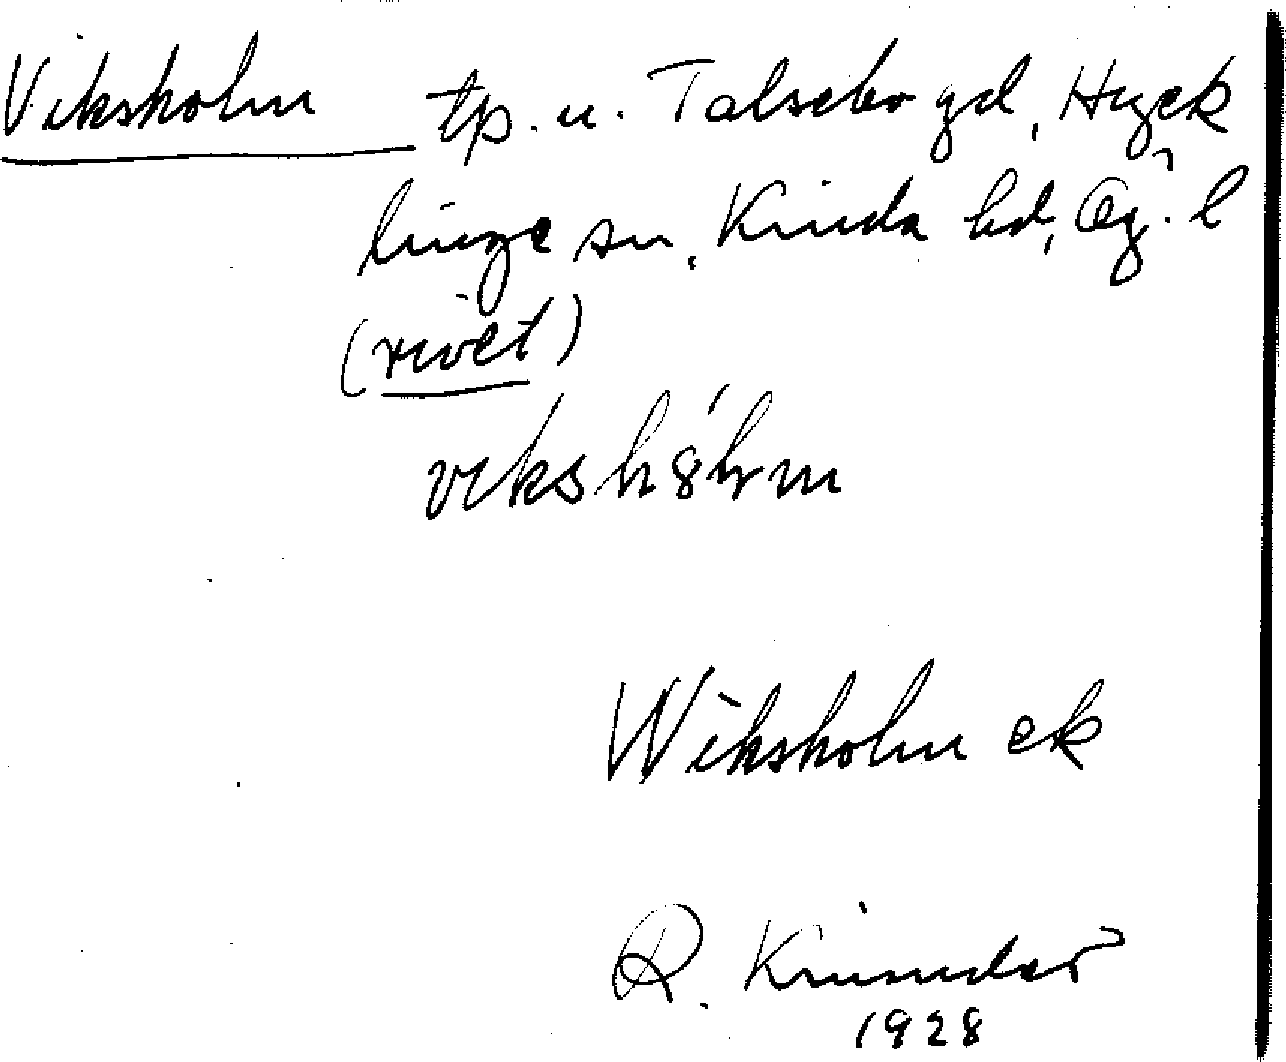 Viksholm tp. u. Talsebo gd, Hyck
linge sn, Kinda hd, Ög. l
(rivet)
Wiksholm ek
R.
1928